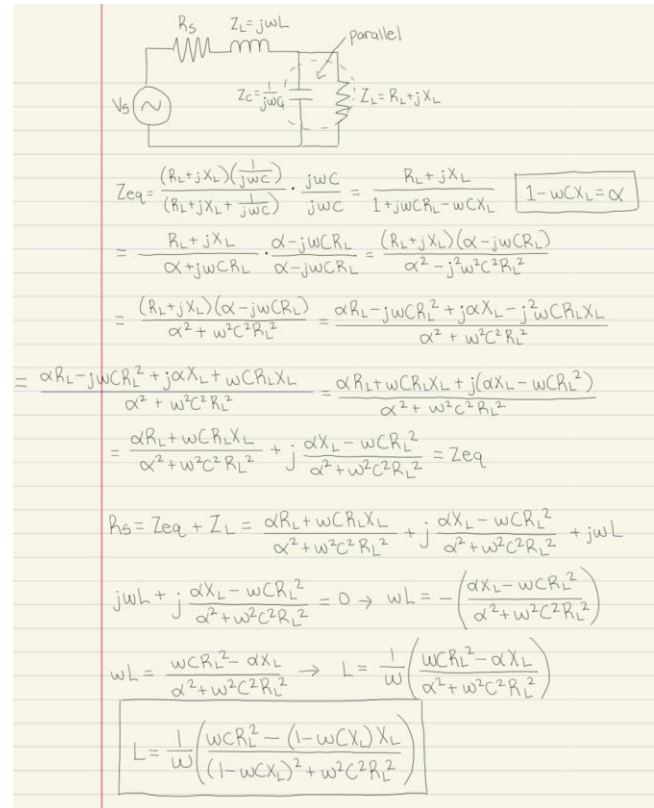 Rs Z_L=jωL
parallel
Vs Zc=1/(jωC) Z_L=R_L+jX_L
Zeq = ((R_L+jX_L)(1/(jωC)))/((R_L+jX_L+1/(jωC))) · jωC/jωC = (R_L+jX_L)/(1+jωCR_L-ωCX_L) 1-ωCX_L=α
= (R_L+jX_L)/(α+jωCR_L) · (α-jωCR_L)/(α-jωCR_L) = ((R_L+jX_L)(α-jωCR_L))/(α²-j²ω²C²R_L²)
= ((R_L+jX_L)(α-jωCR_L))/(α²+ω²C²R_L²) = (αR_L-jωCR_L²+jαX_L-j²ωCR_LX_L)/(α²+ω²C²R_L²)
= (αR_L-jωCR_L²+jαX_L+ωCR_LX_L)/(α²+ω²C²R_L²) = (αR_L+ωCR_LX_L+j(αX_L-ωCR_L²))/(α²+ω²C²R_L²)
= (αR_L+ωCR_LX_L)/(α²+ω²C²R_L²) + j (αX_L-ωCR_L²)/(α²+ω²C²R_L²) = Zeq
Rs = Zeq + Z_L = (αR_L+ωCR_LX_L)/(α²+ω²C²R_L²) + j (αX_L-ωCR_L²)/(α²+ω²C²R_L²) + jωL
jωL + j (αX_L-ωCR_L²)/(α²+ω²C²R_L²) = 0 → ωL = -((αX_L-ωCR_L²)/(α²+ω²C²R_L²))
ωL = (ωCR_L²-αX_L)/(α²+ω²C²R_L²) → L = 1/ω((ωCR_L²-αX_L)/(α²+ω²C²R_L²))
L = 1/ω((ωCR_L²-(1-ωCX_L)X_L)/((1-ωCX_L)²+ω²C²R_L²))